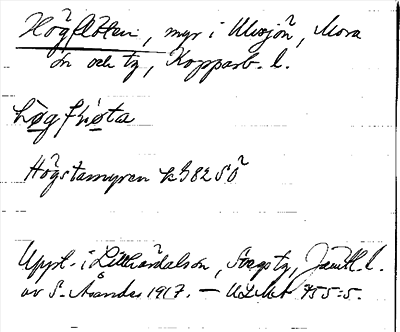 Högflöten, myr i Våmsjön, Mora
sn och tg, Kopparb. l.
högfl ö̀ta
Högstamyren k5825ö
Uppt. i Lillhärdalssn, Svegs tg, Jämtl. l.
av S. Ålander 1917. — ULMA 455:5.